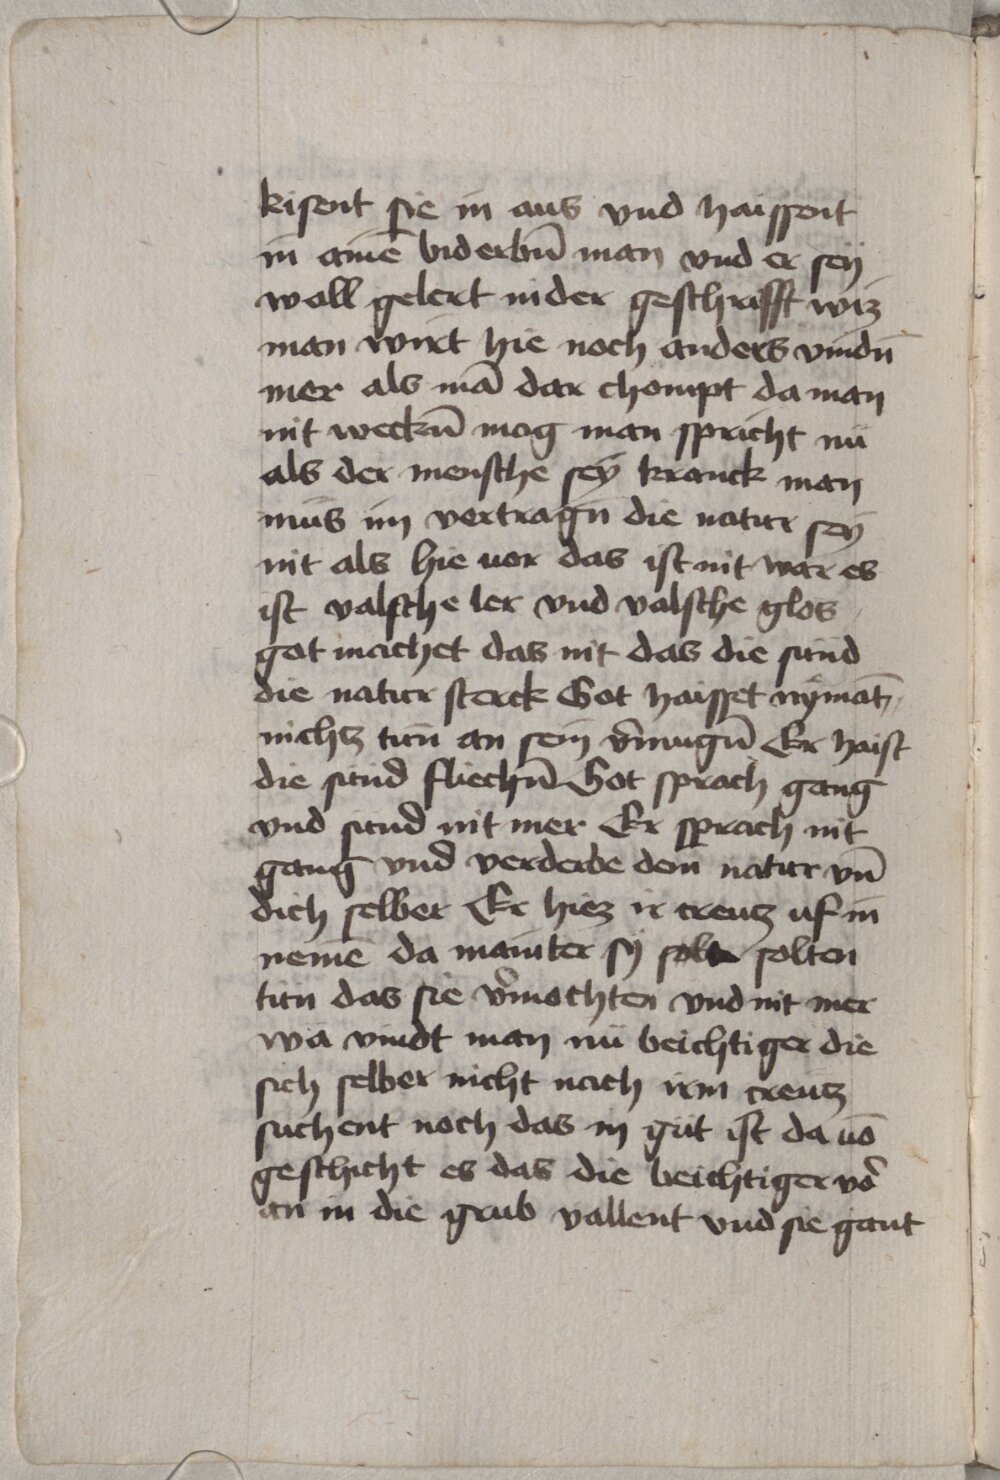 kisent sie in aus vnd haissent
in ainē biderbn̄ man vnd er sey
woll gelert in der geschrifft wiz
man wirt hie noch anders vindn̄
mer als mā dar chompt da man
nit weckn̄ mog man spricht nū
als der mensche sey kranck man
mus im vertragn̄ die natur sey
nit als hie uor das ist nit war es
ist valsche ler vnd valsche glos
got machet das nit das die sund
die natur sterck Got haisset nÿmāt
nichtz tun an sein v̄mugn̄ Er haist
die sund fliechn̄ Got sprach gang
vnd sund nit mer Er sprach nit
gang vnd verderbe dein natur vn̄
dich selber Er hiez ir creutz uf in
nemē da mainter sy solt solten
tun das sie v̄mochten vnd nit mer
wa vindt man nū beichtiger die
sich selber nicht nach irm creutz
suchent noch das in gut ist da uō
geschicht es das die beichtiger vō
an in die grub vallent vnd sie gant